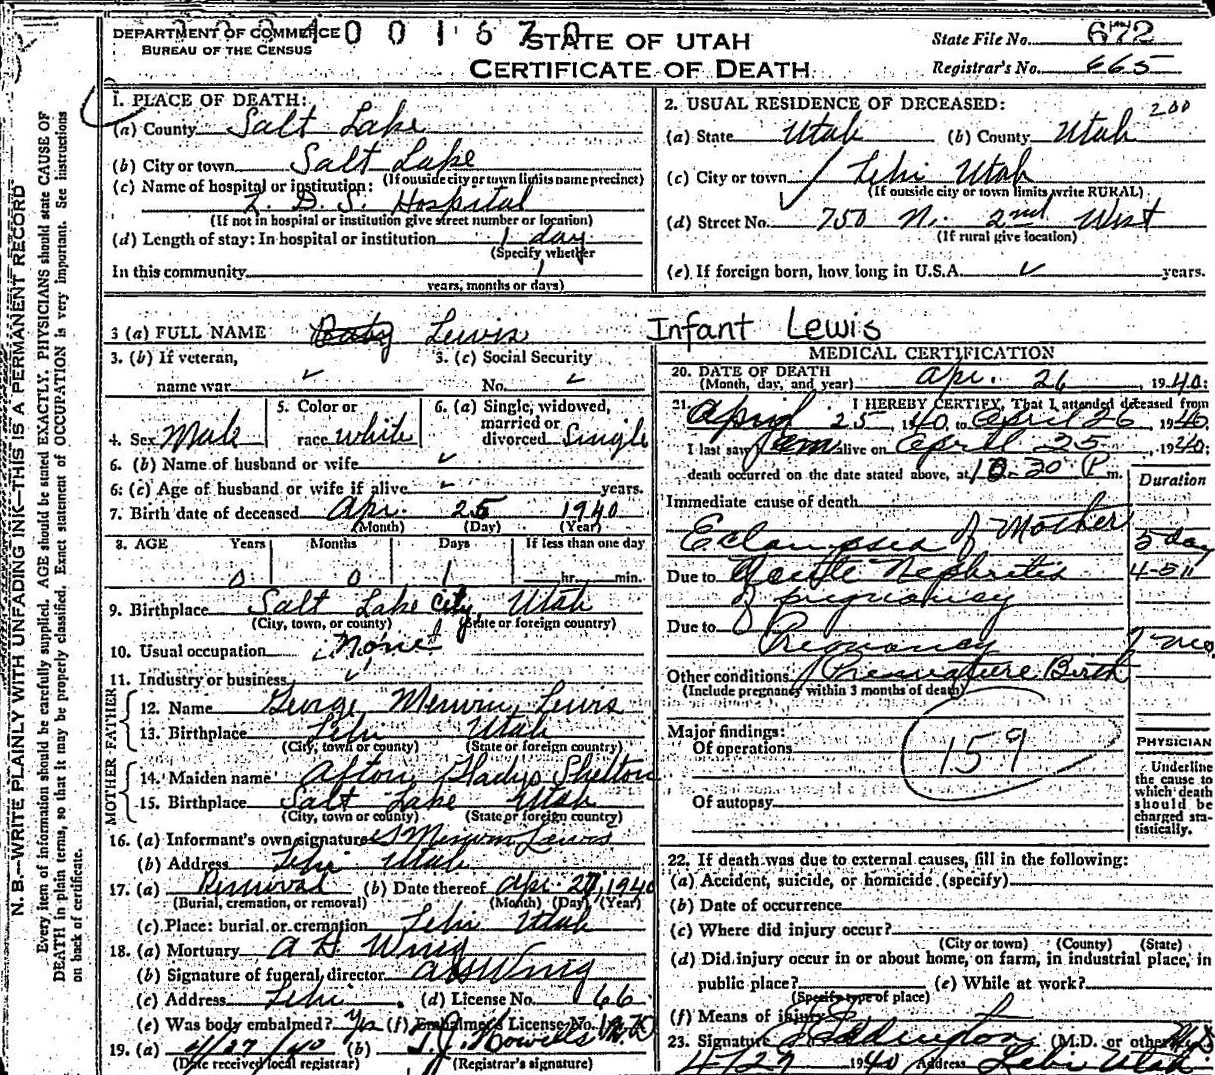 DEPARTMENT OF COMMERCE
BUREAU OF THE CENSUS
4 0 0 1 6 7 0
STATE OF UTAH
CERTIFICATE OF DEATH
State File No. 672
Registrar's No. 665
N. B.—WRITE PLAINLY WITH UNFADING INK—THIS IS A PERMANENT RECORD
Every item of information should be carefully supplied. AGE should be stated EXACTLY. PHYSICIANS should state CAUSE OF
DEATH in plain terms, so that it may be properly classified. Exact statement of OCCUPATION is very important. See instructions
on back of certificate.
1. PLACE OF DEATH:
(a) County Salt Lake
(b) City or town Salt Lake
(If outside city or town limits name precinct)
(c) Name of hospital or institution:
L. D. S. Hospital
(If not in hospital or institution give street number or location)
(d) Length of stay: In hospital or institution 1 day
(Specify whether
In this community 1
years, months or days)
2. USUAL RESIDENCE OF DECEASED: 200
(a) State Utah (b) County Utah
(c) City or town Lehi Utah
(If outside city or town limits write RURAL)
(d) Street No. 750 N. 2nd West
(If rural give location)
(e) If foreign born, how long in U.S.A. ✓ years.
3 (a) FULL NAME Baby Lewis Infant Lewis
3. (b) If veteran,
name war ✓
3. (c) Social Security
No. ✓
4. Sex Male
5. Color or
race white
6. (a) Single, widowed,
married or
divorced Single
6. (b) Name of husband or wife ✓
6. (c) Age of husband or wife if alive ✓ years.
7. Birth date of deceased Apr. 25 1940
(Month) (Day) (Year)
8. AGE Years Months Days If less than one day
0 0 1 hr. min.
9. Birthplace Salt Lake City, Utah
(City, town, or county) (State or foreign country)
10. Usual occupation None
11. Industry or business
FATHER
12. Name George Mervin Lewis
13. Birthplace Lehi Utah
(City, town or county) (State or foreign country)
MOTHER
14. Maiden name Afton Gladys Shelton
15. Birthplace Salt Lake Utah
(City, town or county) (State or foreign country)
16. (a) Informant's own signature Mervin Lewis
(b) Address Lehi Utah
17. (a) Removal (b) Date thereof Apr. 27, 1940
(Burial, cremation, or removal) (Month) (Day) (Year)
(c) Place: burial or cremation Lehi Utah
18. (a) Mortuary A H Wing
(b) Signature of funeral director A H Wing
(c) Address Lehi (d) License No. 66
(e) Was body embalmed? (f) Embalmer's License No.
19. (a) 4/27/40 (b) T. J. Howells
(Date received local registrar) (Registrar's signature)
MEDICAL CERTIFICATION
20. DATE OF DEATH
(Month, day, and year) Apr. 26, 1940:
21. I HEREBY CERTIFY, That I attended deceased from
April 25, 1940, to April 26, 1940,
I last saw him alive on April 25, 1940;
death occurred on the date stated above, at 10-30 P m.
Duration
Immediate cause of death
Eclampsia of Mother 5 day
Due to Acute Nephritis 4-5
of pregnancy
Due to Pregnancy 7 mo.
Other conditions Premature Birth
(Include pregnancy within 3 months of death)
Major findings:
Of operations 159
Of autopsy
PHYSICIAN
Underline
the cause to
which death
should be
charged sta-
tistically.
22. If death was due to external causes, fill in the following:
(a) Accident, suicide, or homicide (specify)
(b) Date of occurrence
(c) Where did injury occur?
(City or town) (County) (State)
(d) Did injury occur in or about home, on farm, in industrial place, in
public place? (e) While at work?
(Specify type of place)
(f) Means of injury
23. Signature Eddington (M.D. or other) M.D.
4/27 1940 Address Lehi Utah